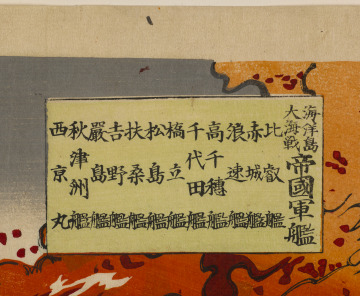 海洋島
大海戦
帝國軍艦
比叡艦
赤城艦
浪速艦
高千穂艦
千代田艦
橋立艦
松島艦
扶桑艦
吉野艦
嚴島艦
秋津洲艦
西京丸